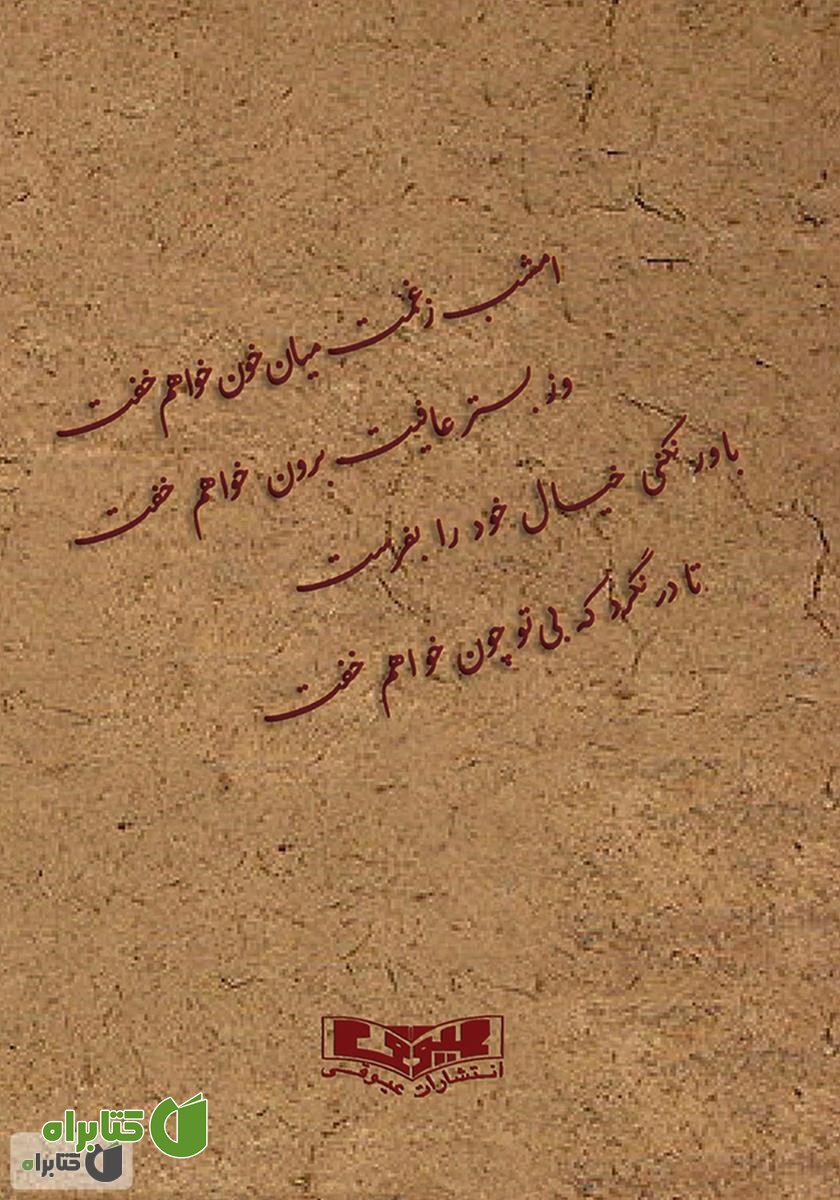 امشب ز غمت میان خون خواهم خفت
وز بستر عافیت برون خواهم خفت
باور نکنی خیال خود را بفرست
تا در نگرد که بی تو چون خواهم خفت
انتشارات عیوقی
کتابراه
کتابراه